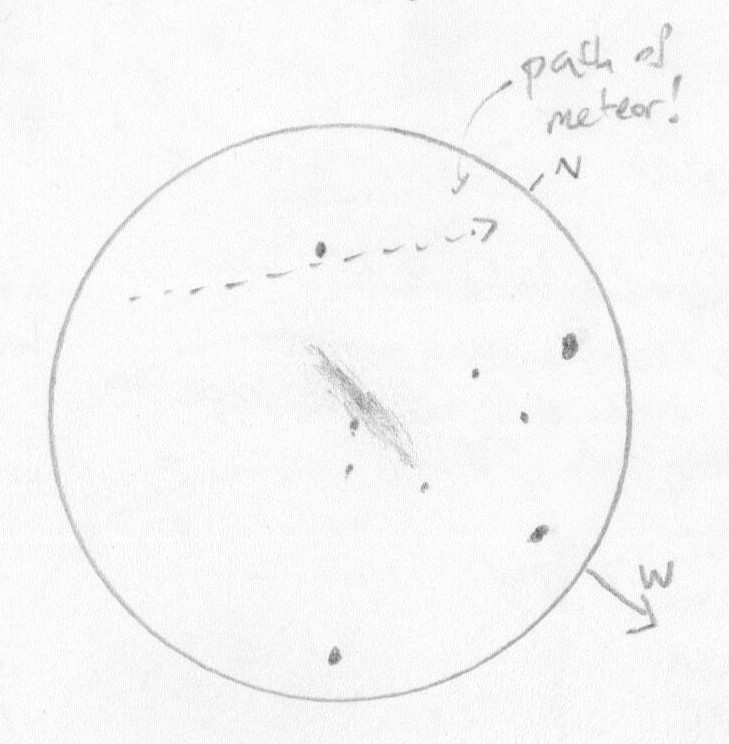 path of
meteor!
N
W